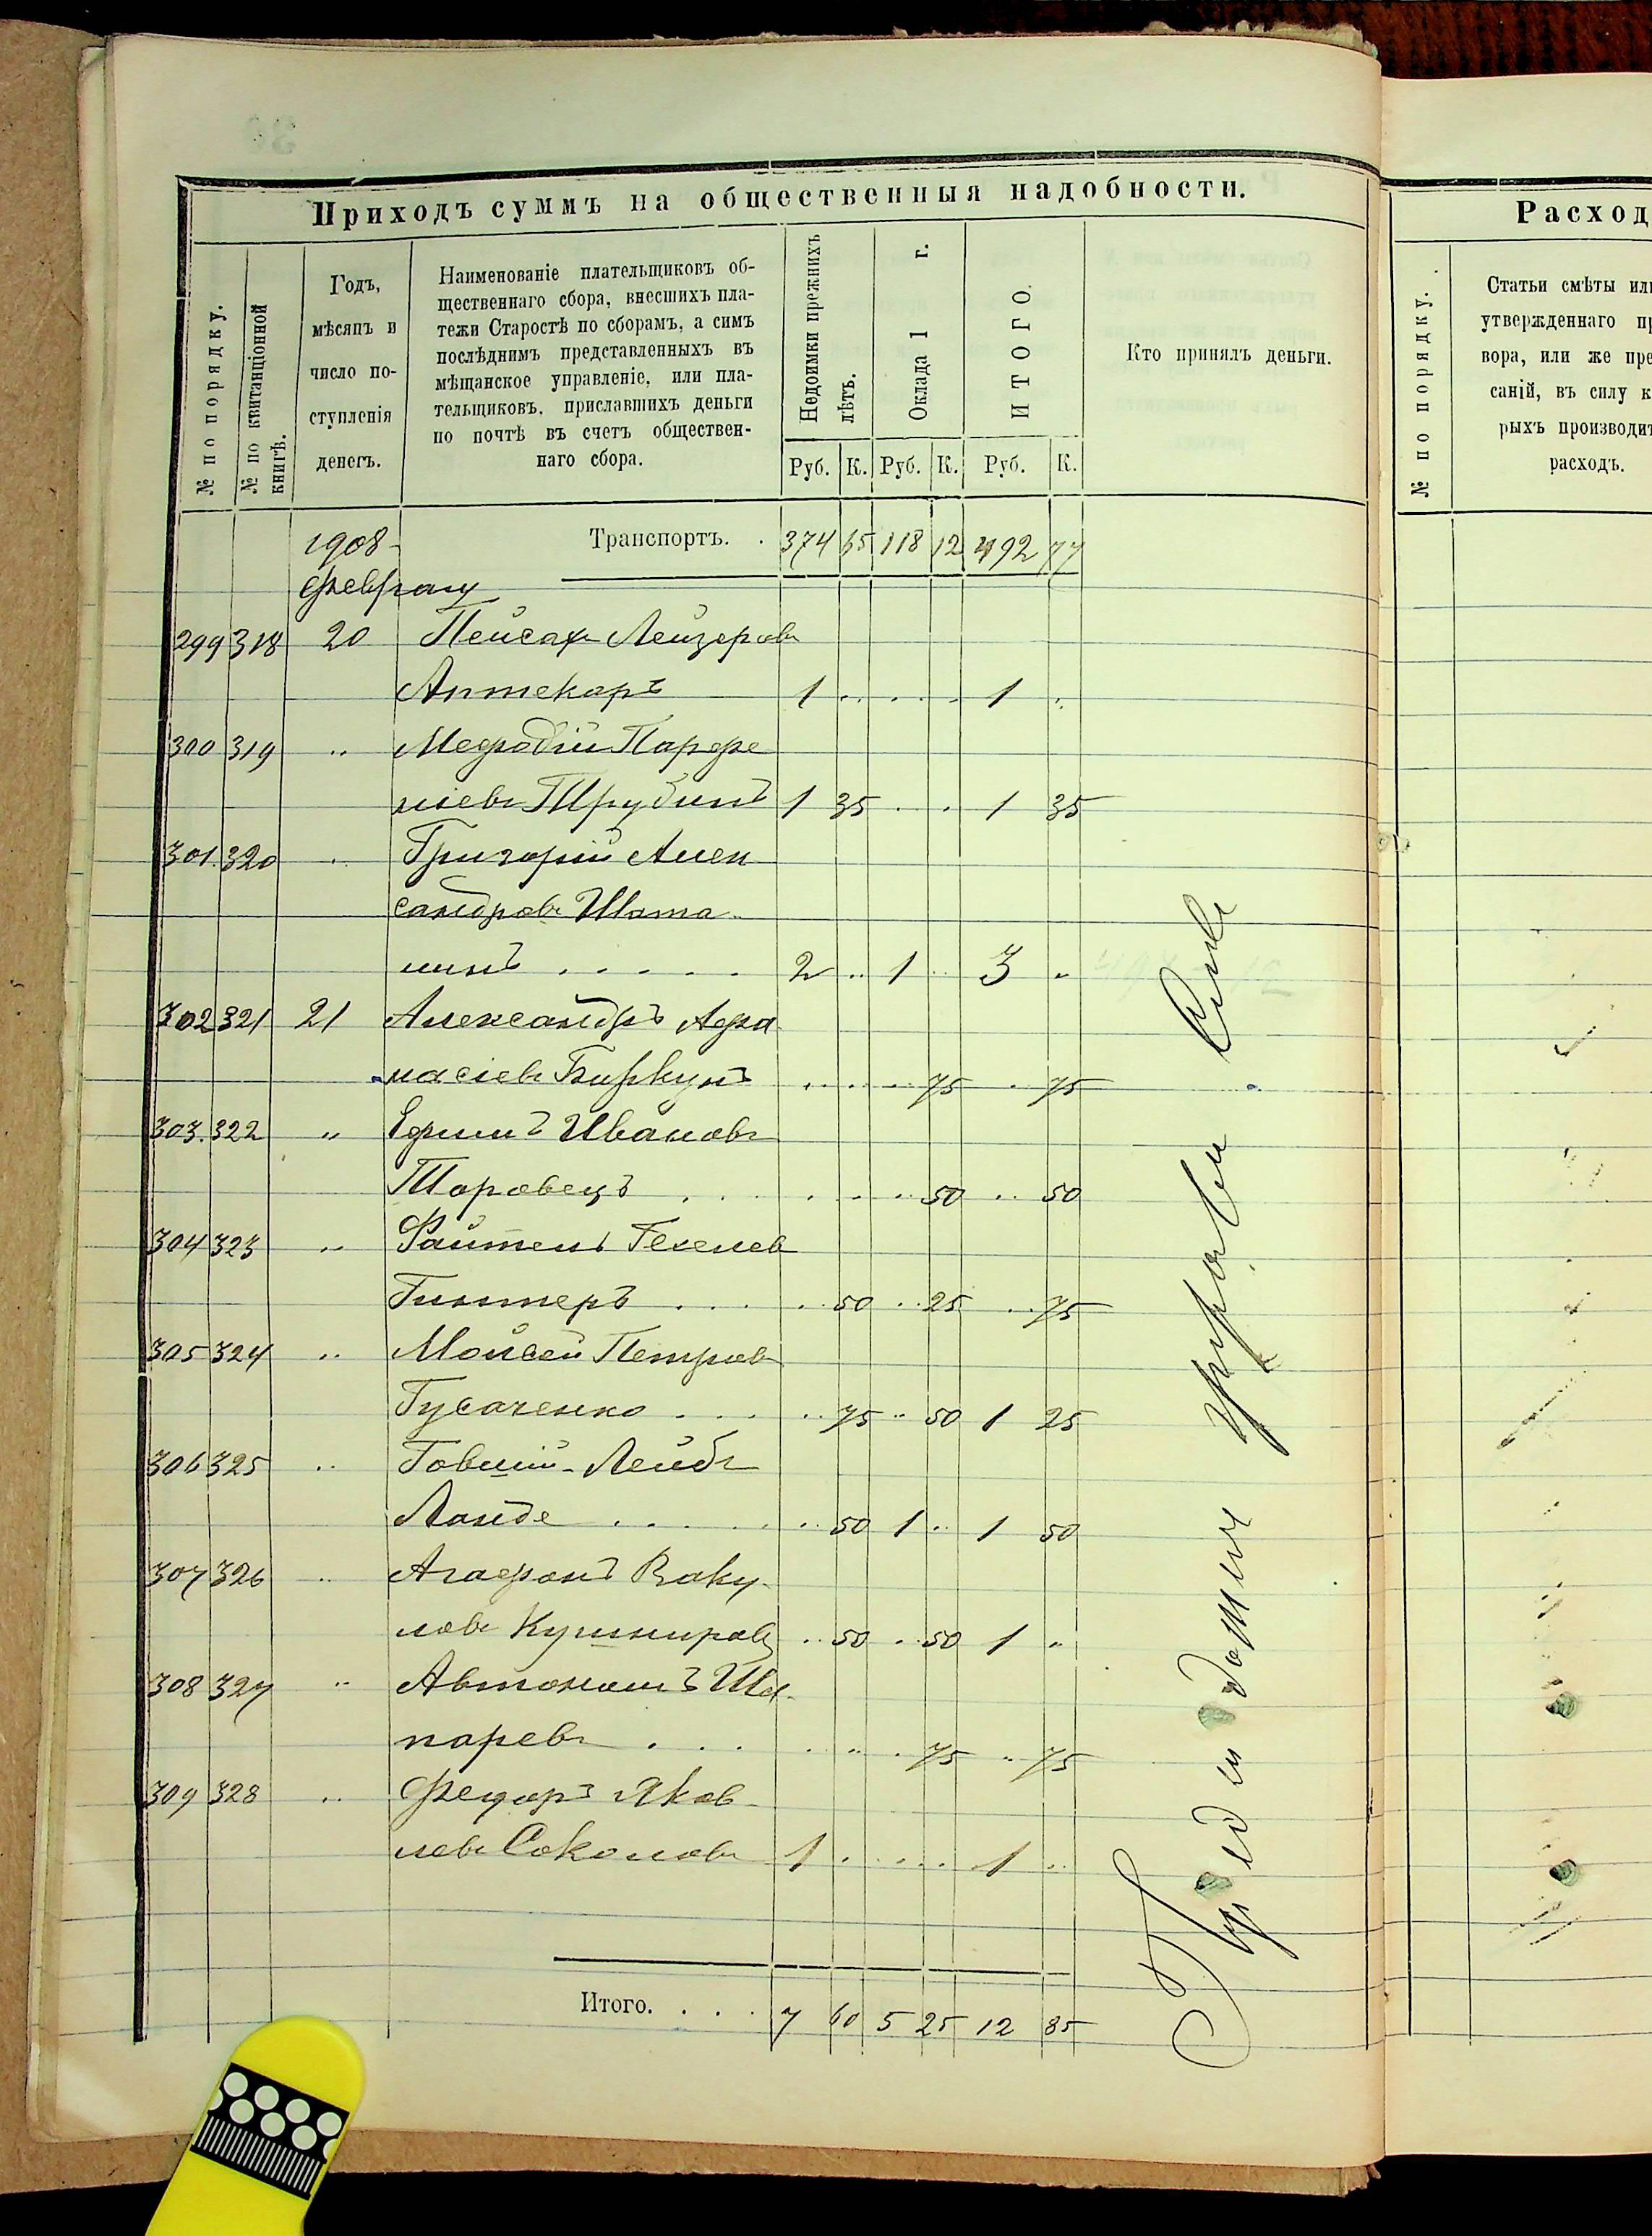 Приходъ суммъ на общественныя надобности.
№ по порядку.
№ по квитанціонной книгѣ.
Годъ,
мѣсяцъ и
число по-
ступленія
денегъ.
Наименованіе плательщиковъ об-
щественнаго сбора, внесшихъ пла-
тежи Старостѣ по сборамъ, а симъ
послѣднимъ представленныхъ въ
мѣщанское управленіе, или пла-
тельщиковъ, приславшихъ деньги
по почтѣ въ счетъ обществен-
наго сбора.
Недоимки прежнихъ лѣтъ.
Оклада 1 г.
ИТОГО.
Кто принялъ деньги.
Руб. К. Руб. К. Руб. К.
1908 Транспортъ. . 374 65 118 12 492 77
299 318 20 Пейсахъ Лейзеровъ
Аптекарь 1 .. . . 1 ..
300 319 " Мефодій Парфе
ніевъ Трубинъ 1 35 . . 1 35
301 320 " Григорій Алек
сандровъ Шата
нинъ . . . . . 2 .. 1 .. 3 "
302 321 21 Александръ Афа
насіевъ Биркунъ . . . 75 . 75
303. 322 " Ефимъ Ивановъ
Торовецъ . . . . 50 .. 50
304 323 " Файтель
Гинтеръ . . . .. 50 .. 25 .. 75
305 324 " Мойсей Петровъ
Гусаченко . . . .. 75 .. 50 1 25
306 325 " Товшій-Лейбъ
Ланде . . . . . .. 50 1 .. 1 50
307 326 " Агафонъ Ваку
ловъ Кушнировъ .. 50 . 50 1 "
308 327 " Автономъ Ша
паревъ . . . . .. . 75 .. 75
309 328 " Федоръ Яков
левъ Соколовъ 1 . . . 1 ..
Итого. . . . 7 60 5 25 12 85
Расход
№ по порядку.
Статьи смѣты или
утвержденнаго пр
вора, или же пре
саній, въ силу к
рыхъ производит
расходъ.